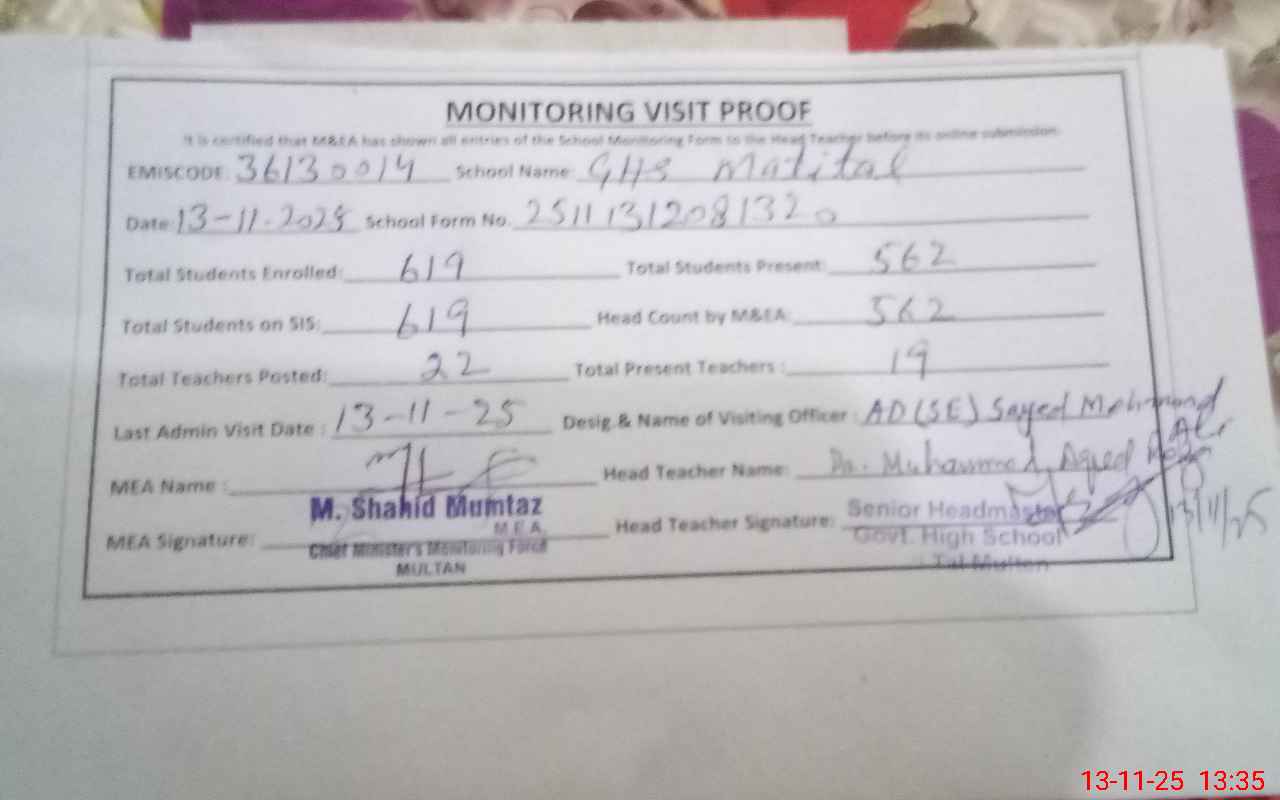 MONITORING VISIT PROOF
It is certified that M&EA has shown all entries of the School Monitoring Form to the Head Teacher before its online submission.
EMISCODE: 36130014 School Name: GHS Matital
Date: 13-11-2025 School Form No. 25111312081320
Total Students Enrolled: 619 Total Students Present: 562
Total Students on SIS: 619 Head Count by M&EA: 562
Total Teachers Posted: 22 Total Present Teachers : 19
Last Admin Visit Date : 13-11-25 Desig & Name of Visiting Officer : AD(SE) Sayed Mehmood Ali
MEA Name : Head Teacher Name: Dr. Muhammad Aqeel
M. Shahid Mumtaz
M.E.A.
MEA Signature: Head Teacher Signature: Senior Headmaster
Chief Minister's Monitoring Force
MULTAN
Govt. High School
Tal Multan
13/11/25
13-11-25 13:35